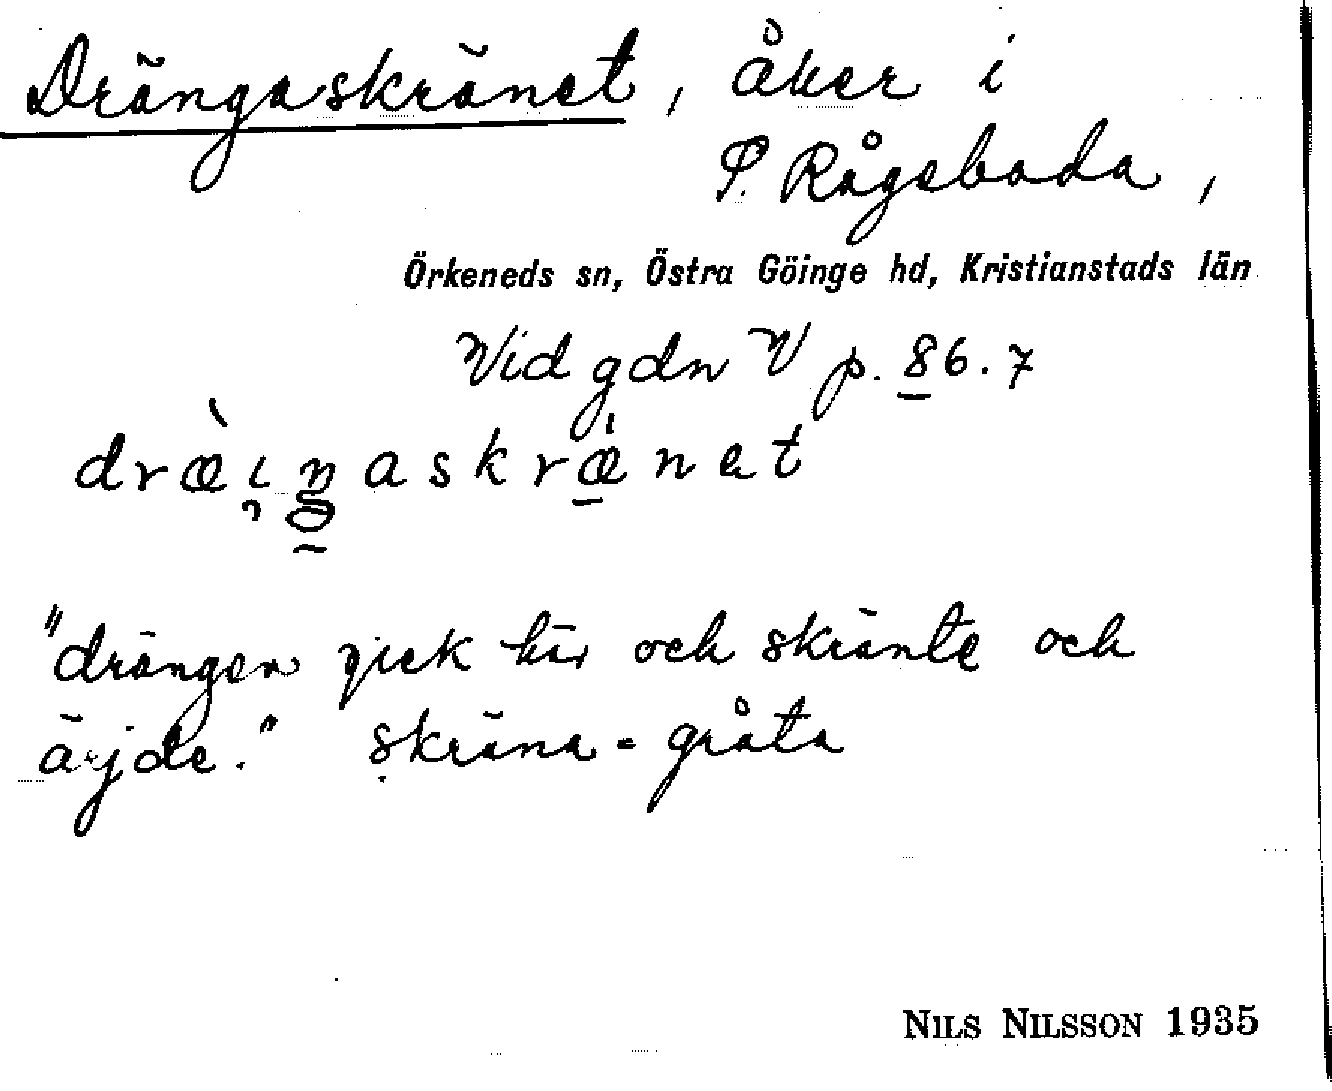 Drängaskränet, åker i
P. Rågeboda,
Örkeneds sn, Östra Göinge hd, Kristianstads län
Vid gdn V p. 86.7
dræ̀i̯ŋaskræ̠̍net
"drängen gick här och skränte och
ärjde." skräna = gråta
NILS NILSSON 1935